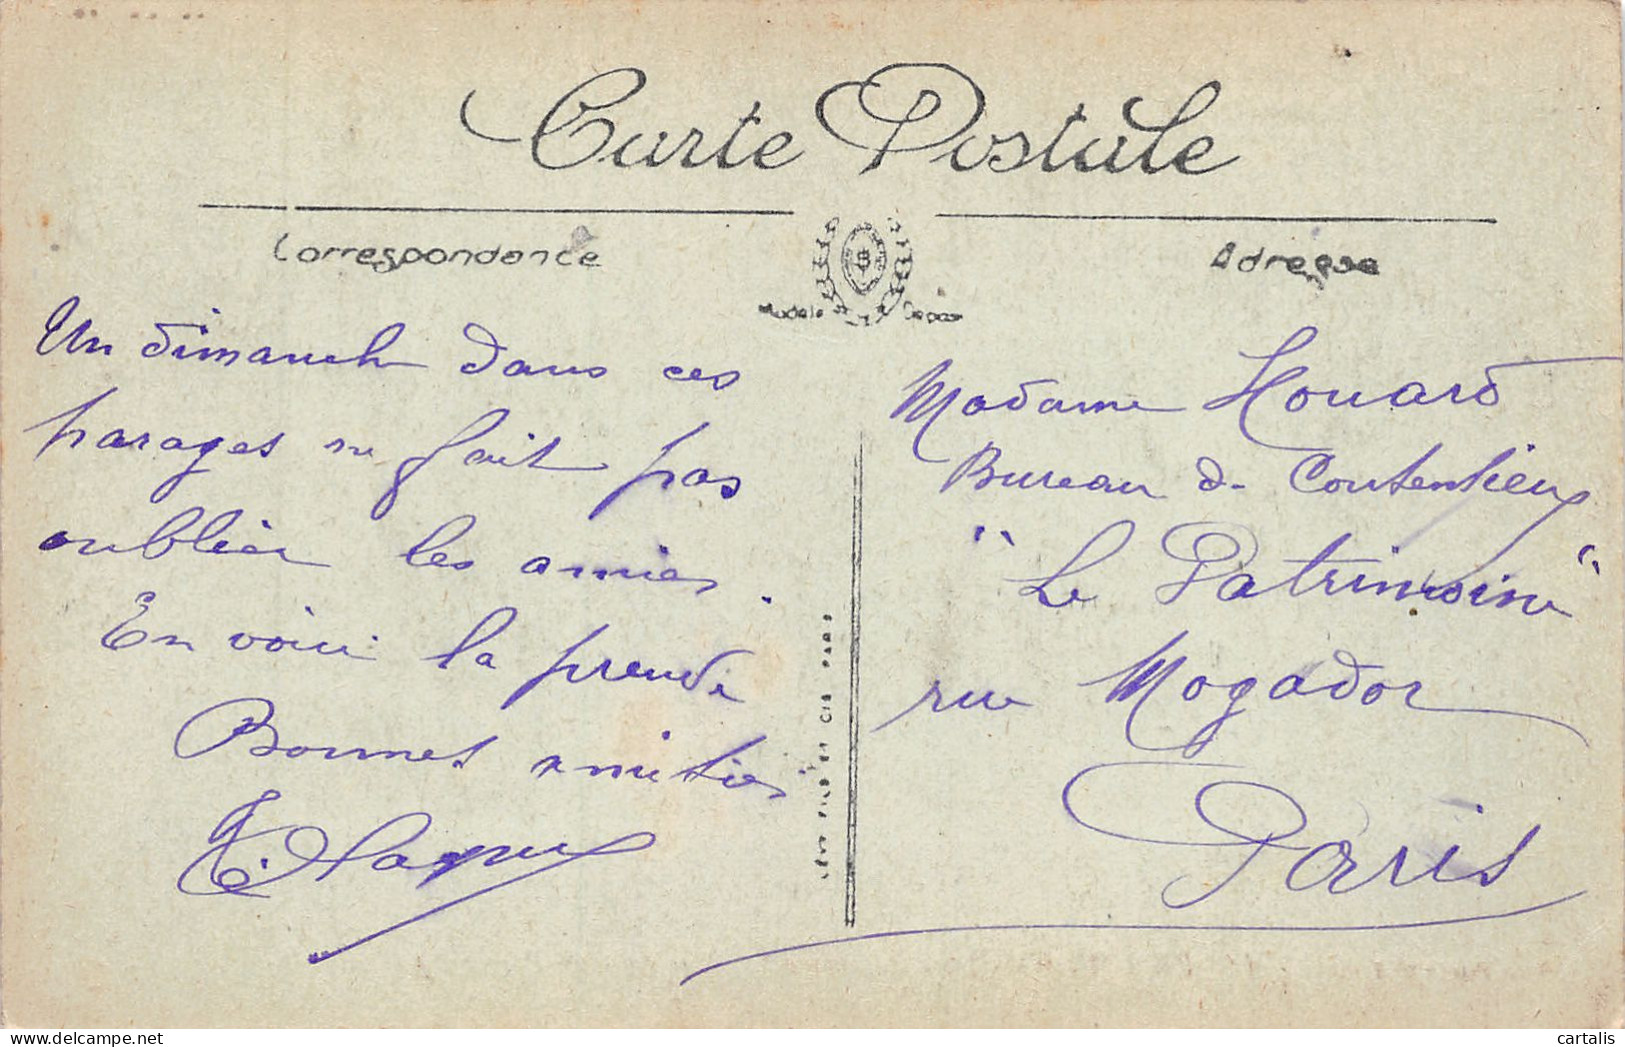 Carte Postale
Correspondance
Adresse
Modele Depose
Un dimanche dans ces
parages ne fait pas
oublier les amies.
En voici la preuve
Bonnes amitiés
Madame Houard
Bureau de Contentieux
"Le Patrimoine"
rue Mogador
Paris
LEVY FILS ET CIE PARIS
cartalis